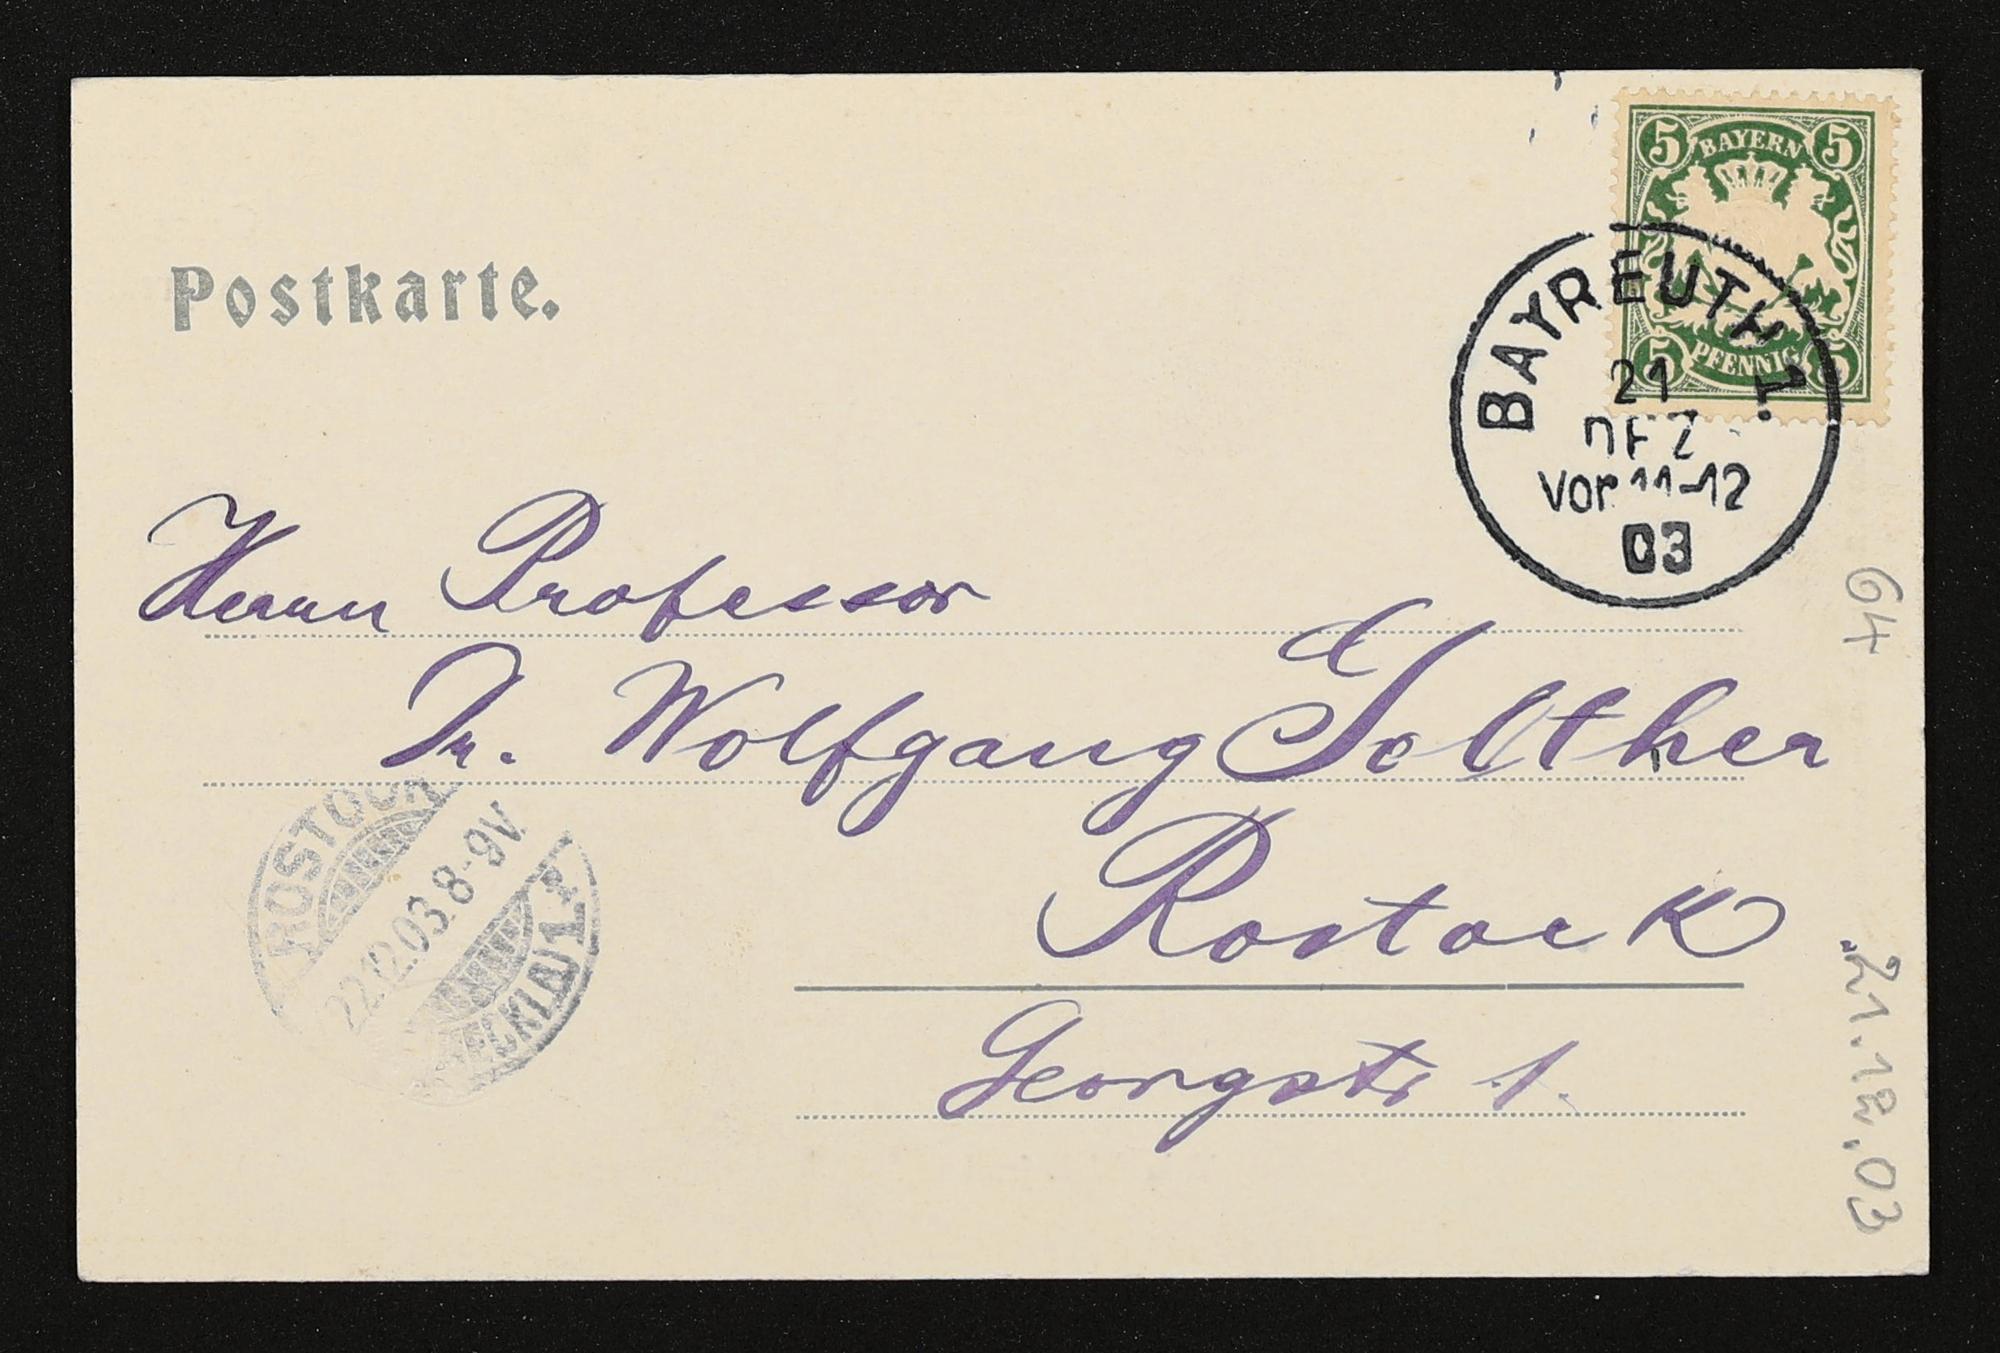 Postkarte.
5 BAYERN 5
5 PFENNIG 5
BAYREUTH 1.
21
DEZ
Vor 11-12
03
Herrn Professor
Dr. Wolfgang Golther
Rostock
Georgstr 1.
ROSTOCK
22.12.03.8-9V.
(MECKLB.) 1
64
21.12.03